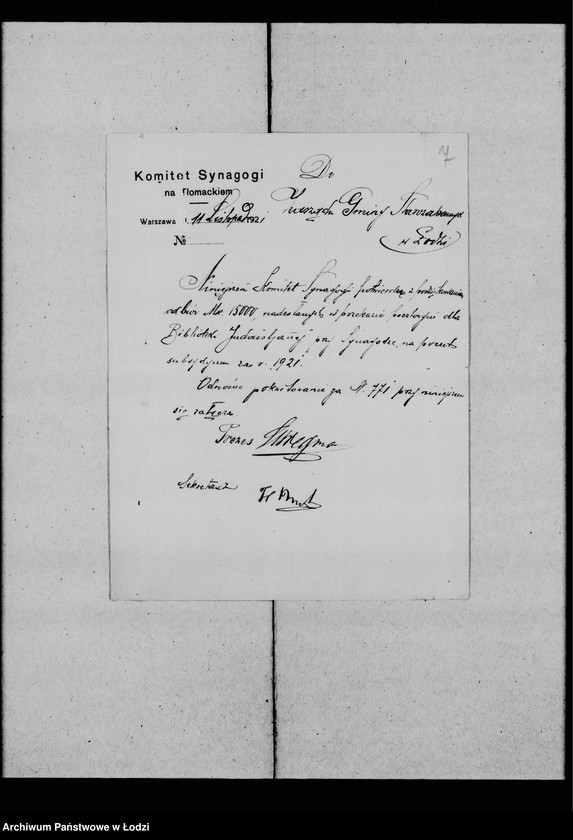 7
Komitet Synagogi
na Tłomackiem
Warszawa d. 11 Listopada 1921
№
Do
Zarządu Gminy Starozakonnych
w Łodzi
Niniejszem Komitet Synagogi potwierdza z podziękowaniem
odbiór Mk. 15000, nadesłanych w przekazie pocztowym dla
Biblioteki Judaistycznej przy Synagodze, na poczet
subsydjum za r. 1921.
Odnośne pokwitowanie za N. 771 przy niniejszem
się załącza
Prezes
Sekretarz
Archiwum Państwowe w Łodzi